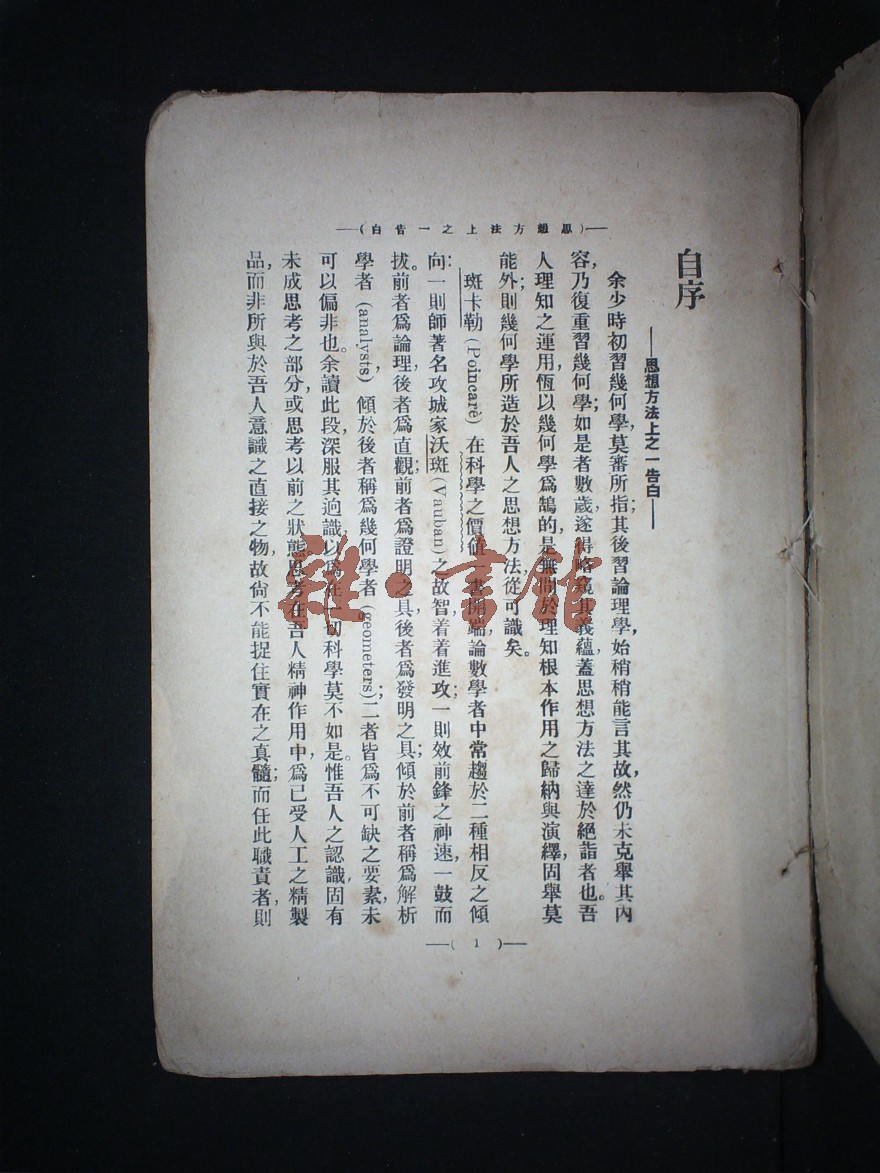 —(思想方法上之一告白)—
自序
——思想方法上之一告白——
余少時初習幾何學,莫審所指;其後習論理學,始稍稍能言其故,然仍未克舉其內
容,乃復重習幾何學;如是者數歲,遂得略窺其義蘊,蓋思想方法之達於絕詣者也。吾
人理知之運用,恆以幾何學爲鵠的,是無間於理知根本作用之歸納與演繹,固舉莫
能外;則幾何學所造於吾人之思想方法,從可識矣。
斑卡勒 (Poincaré) 在科學之價值一書開端,論數學者中常趨於二種相反之傾
向:一則師著名攻城家沃斑 (Vauban) 之故智,着着進攻;一則效前鋒之神速,一鼓而
拔。前者爲論理,後者爲直觀;前者爲證明之具,後者爲發明之具;傾於前者稱爲解析
學者 (analysts),傾於後者稱爲幾何學者 (geometers);二者皆爲不可缺之要素,未
可以偏非也。余讀此段,深服其迥識,以爲在一切科學莫不如是。惟吾人之認識,固有
未成思考之部分,或思考以前之狀態,思考在吾人精神作用中,爲已受人工之精製
品,而非所與於吾人意識之直接之物,故尙不能捉住實在之真髓;而任此職責者,則
—( 1 )—
雜·書館